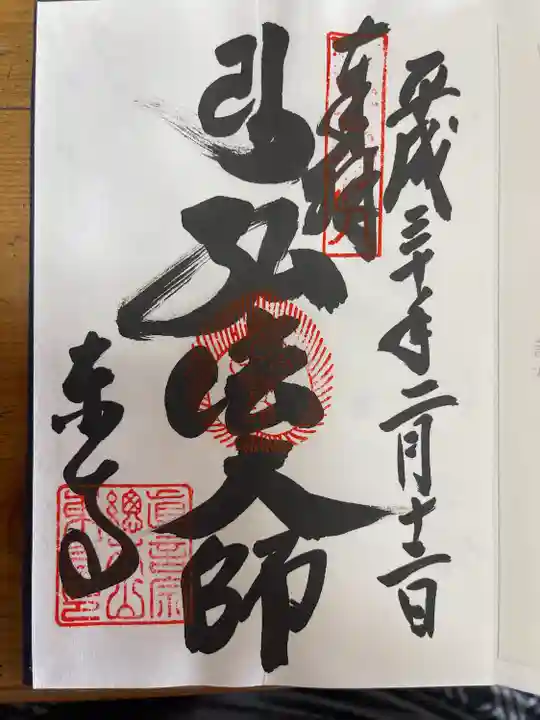 平成三十年二月十二日
奉拝
弘法大師
東寺